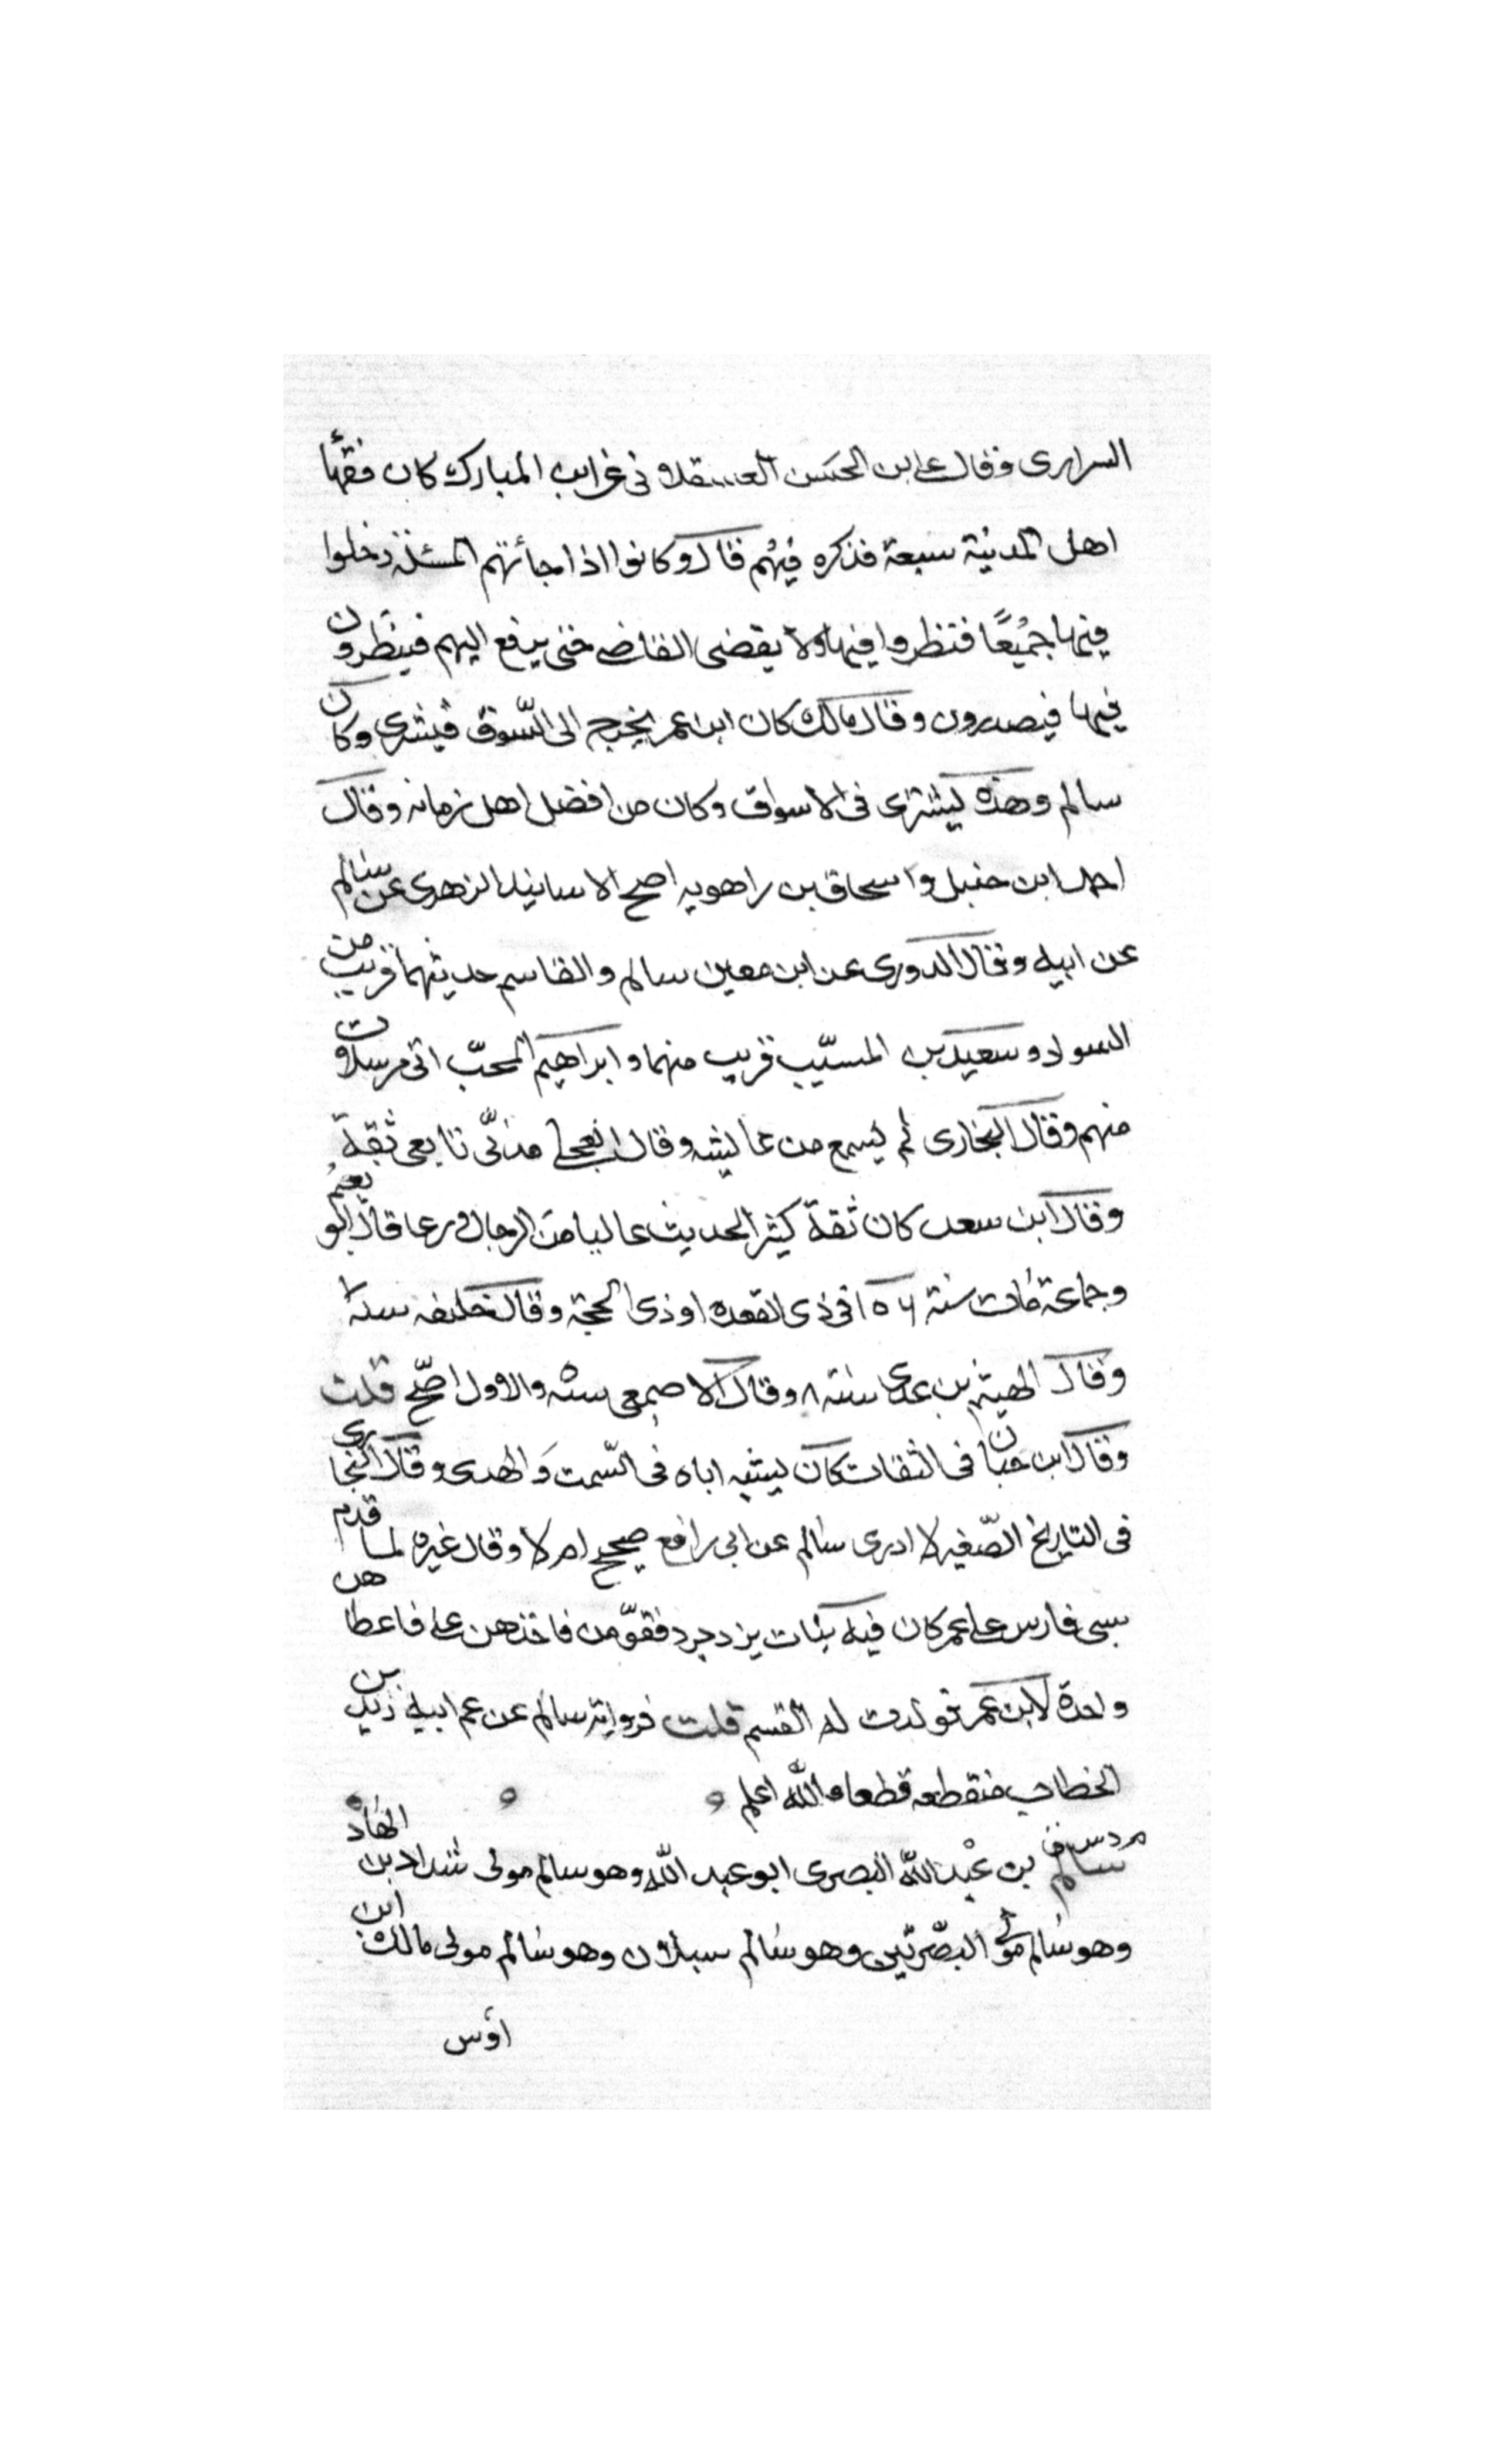 السراري وقال علي ابن الحسن العسقلا في عن ابن المبارك كان فقهأ
اهل المدنية سبعة فذكره فيهم قال وكانوا اذا جأتهم المسئلة دخلوا
فيها جميعًا فنظروا فيها ولا يقضى القاضى حتى يرفع اليهم فينظرون
فيها فيصدرون وقال مالك كان ابن عمر يخرج الى السّوق فيشترى وكان
سالم وهذه يشترى فى الاسواق وكان من افضل اهل زمانه وقال
احمد ابن حنبل واسحاق بن راهويه اصح الاسانيد الزهرى عن سالم
عن ابيه وقال الدورى عن ابن معين سالم والقاسم حديثهما قريب من
السوا وسعيد بن المسيّب قريب منهما وابراهيم المحبّ اتى مرسلات
منهم وقال البخارى لم يسمع من عايشه وقال العجلى مدنى تابعى ثقة
وقال ابن سعد كان ثقة كثير الحديث عاليا من الرجال ورعا قال ابو نعيم
وجماعة مات سنة ١٥٦ فى ذى القعده او ذى الحجة وقال خليفه سنة ٧
وقال الهيثم بن عدى سنة ٨ وقال الاصمعى سنة ٥ والاول اصحّ قلت
وقال ابن حبان فى الثقات كان يشبه اباه فى السّمت والهدى وقال البخارى
فى التاريخ الصّغير لا ادرى سالم عن ابى رافع صحيح ام لا وقال غيره لما قدم
سبى فارس على عمر كان فيه بنات يزدجرد فقوّمن فاخذهن على فاعطاهن
واحدة لابن عمر فولدت له القسم قلت فرواية سالم عن عم ابيه زيد بن
الخطاب منقطعه قطعا والله اعلم
م د س ق سالم بن عبد الله البصرى ابو عبد الله وهو سالم مولى شداد بن الهاد
وهو سالم مولى البصّرتين وهو سالم سبلان وهو سالم مولى مالك ابن
اوس